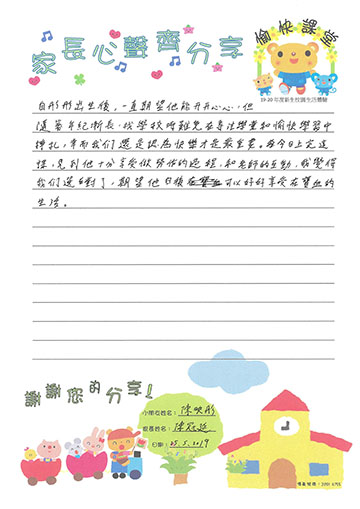 家長心聲齊分享
愉快課堂
19-20 年度新生校園生活體驗
自彤彤出生後，一直期望他能開開心心，但
隨着年紀漸長，找學校時難免在專注學業和愉快學習中
掙扎，幸而我們還是認為快樂才是最重要。在今日上完這
裡，見到他十分享受做勞作的過程，和老師的互動，我覺得
我們選對了，期望他日後可以好好享受在寶血的
生活。
謝謝您的分享！
小朋友姓名：陳映彤
家長姓名：陳冠廷
日期：25.5.2019